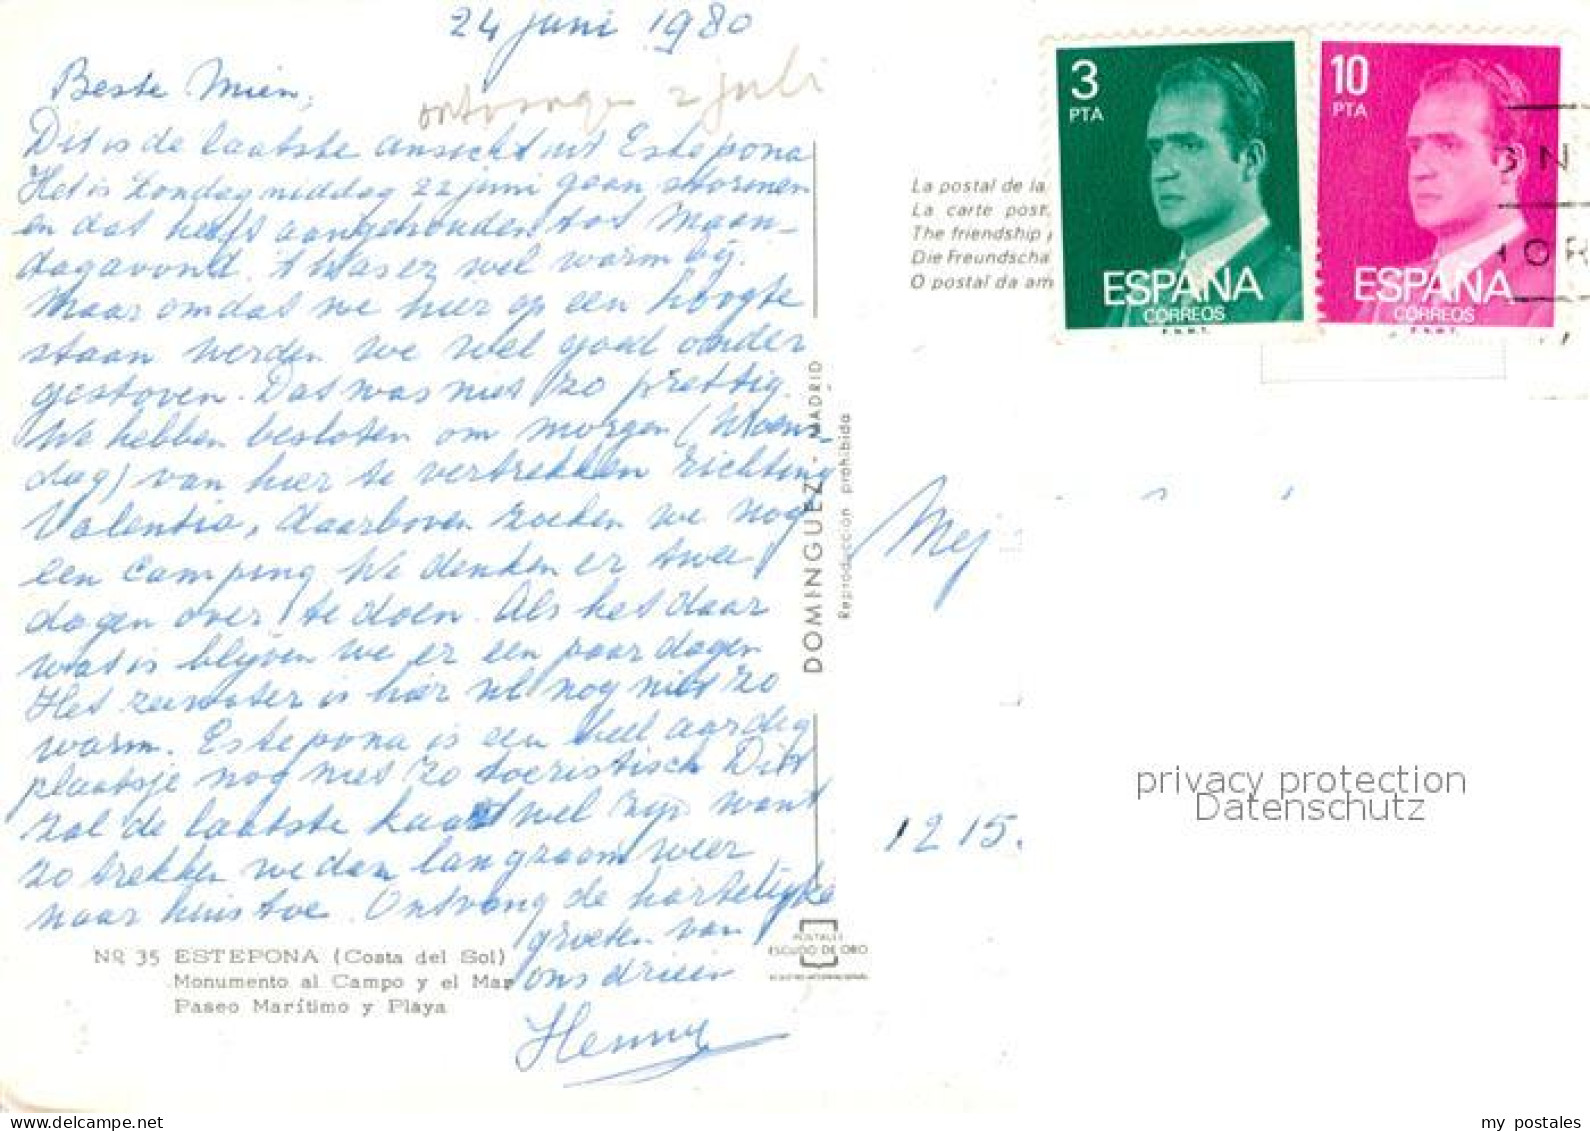 24 juni 1980
Beste Mien,
ontvangen 2 juli
Dit is de laatste ansicht uit Estepona
Het is Zondagmiddag 22 juni gaan stormen
en dat heeft aangehouden tot Maan-
dagavond. t was er wel warm bij.
Maar omdat we hier op een hoogte
staan werden we wel goed onder
gestoven. Dat was niet zo prettig.
We hebben besloten om morgen (Woens-
dag) van hier te vertrekken richting
Valentia, daarboven zoeken we nog
een camping. We denken er twee
dagen over te doen. Als het daar
wat is blijven we er een paar dagen
Het zeewater is hier nog niet zo
warm. Estepona is een heel aardig
plaatsje nog niet zo toeristisch Dit
zal de laatste kaart wel zijn want
zo trekken we dan langzaam weer
naar huis toe. Ontvang de hartelijke
groeten van
ons drieën
Henny
Nº 35 ESTEPONA (Costa del Sol)
Monumento al Campo y el Mar
Paseo Marítimo y Playa
DOMINGUEZ - MADRID
Reproducción prohibida
POSTALES
ESCUDO DE ORO
La postal de la
La carte post.
The friendship
Die Freundscha
O postal da am
3
PTA
ESPAÑA
CORREOS
F.N.M.T.
10
PTA
ESPAÑA
CORREOS
F.N.M.T.
Mej
1215.
privacy protection
Datenschutz
my postales